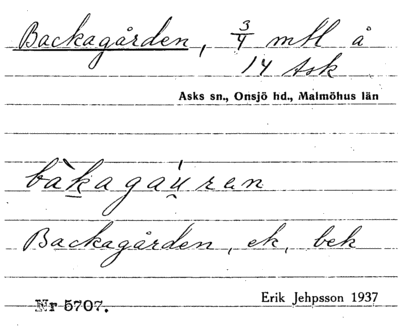 Backagården, 3/4 mtl å
14 Ask
Asks sn., Onsjö hd., Malmöhus län
bàkagáu̯ren
Backagården, ek, bek
Nr 5707.
Erik Jehpsson 1937